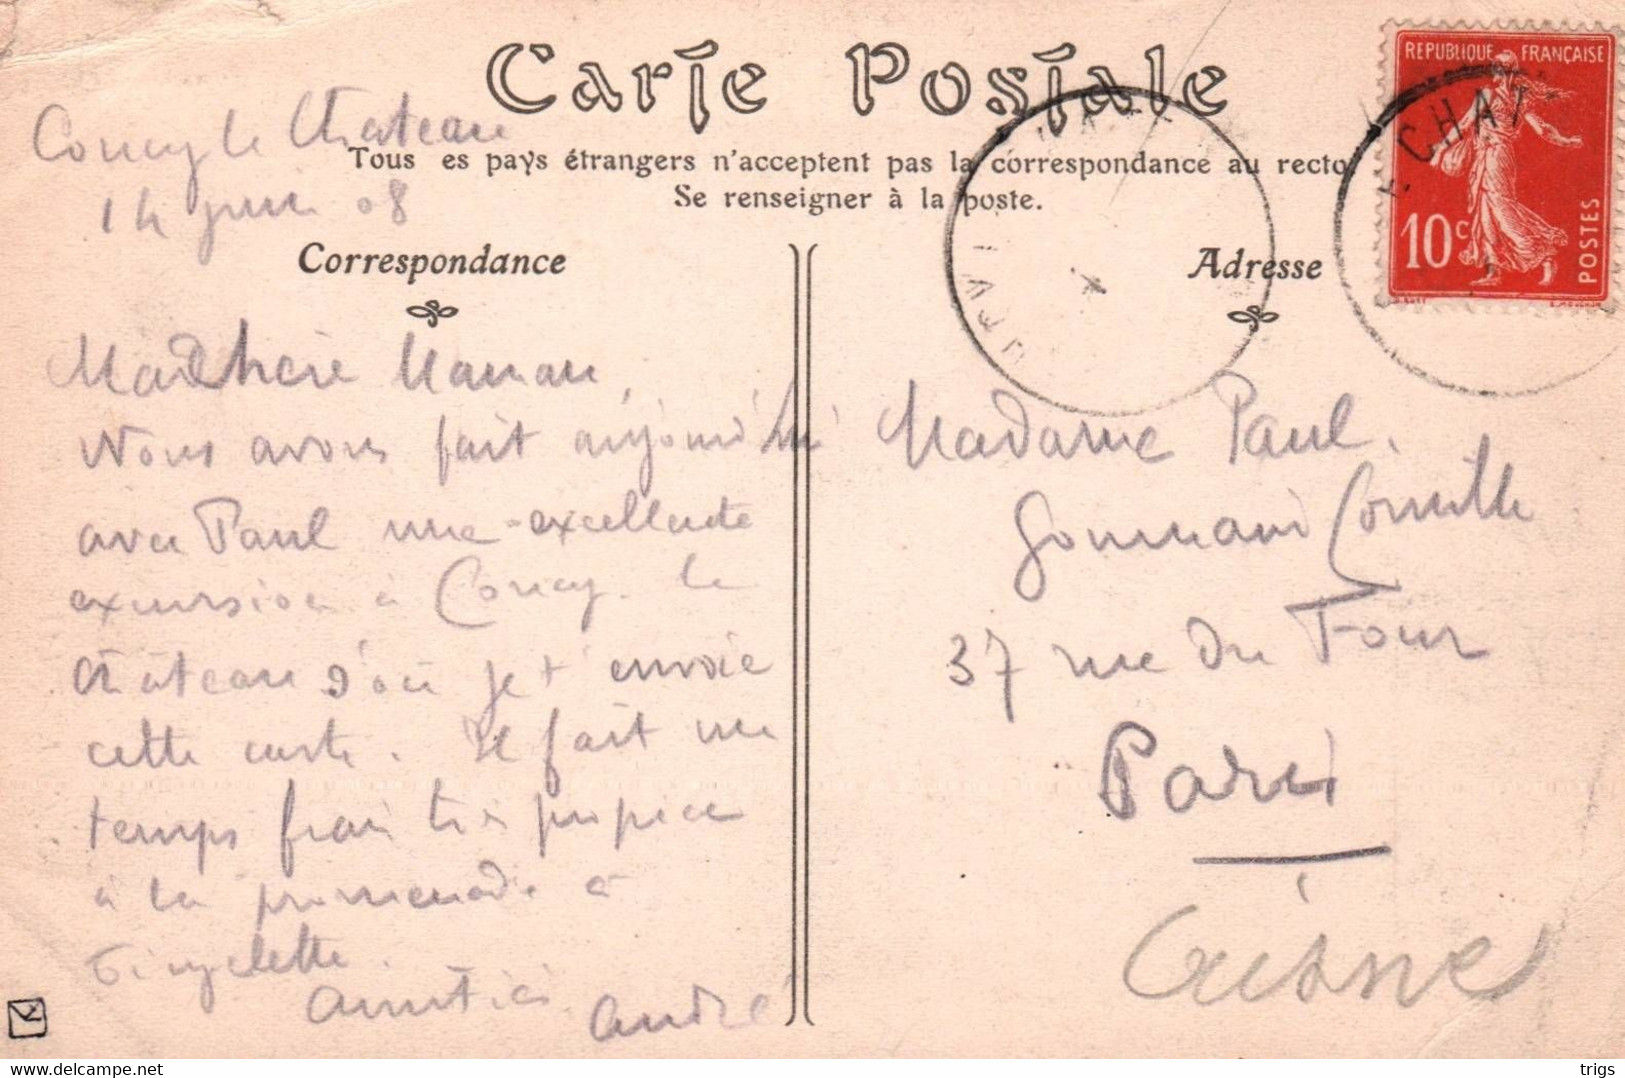 Carte Postale
Coucy le Chateau
14 juin 08
Tous es pays étrangers n'acceptent pas la correspondance au recto.
Se renseigner à la poste.
Correspondance
Adresse
REPUBLIQUE FRANÇAISE
10c
POSTES
CHAT
Ma chère Maman,
Nous avons fait aujourd'hui
avec Paul une excellente
excursion à Coucy le
château d'où je t'envoie
cette carte. Il fait un
temps frais très propice
à la promenade à
bicyclette.
Amitiés André
Madame Paul
37 rue du Four
Paris
Aisne
trigs